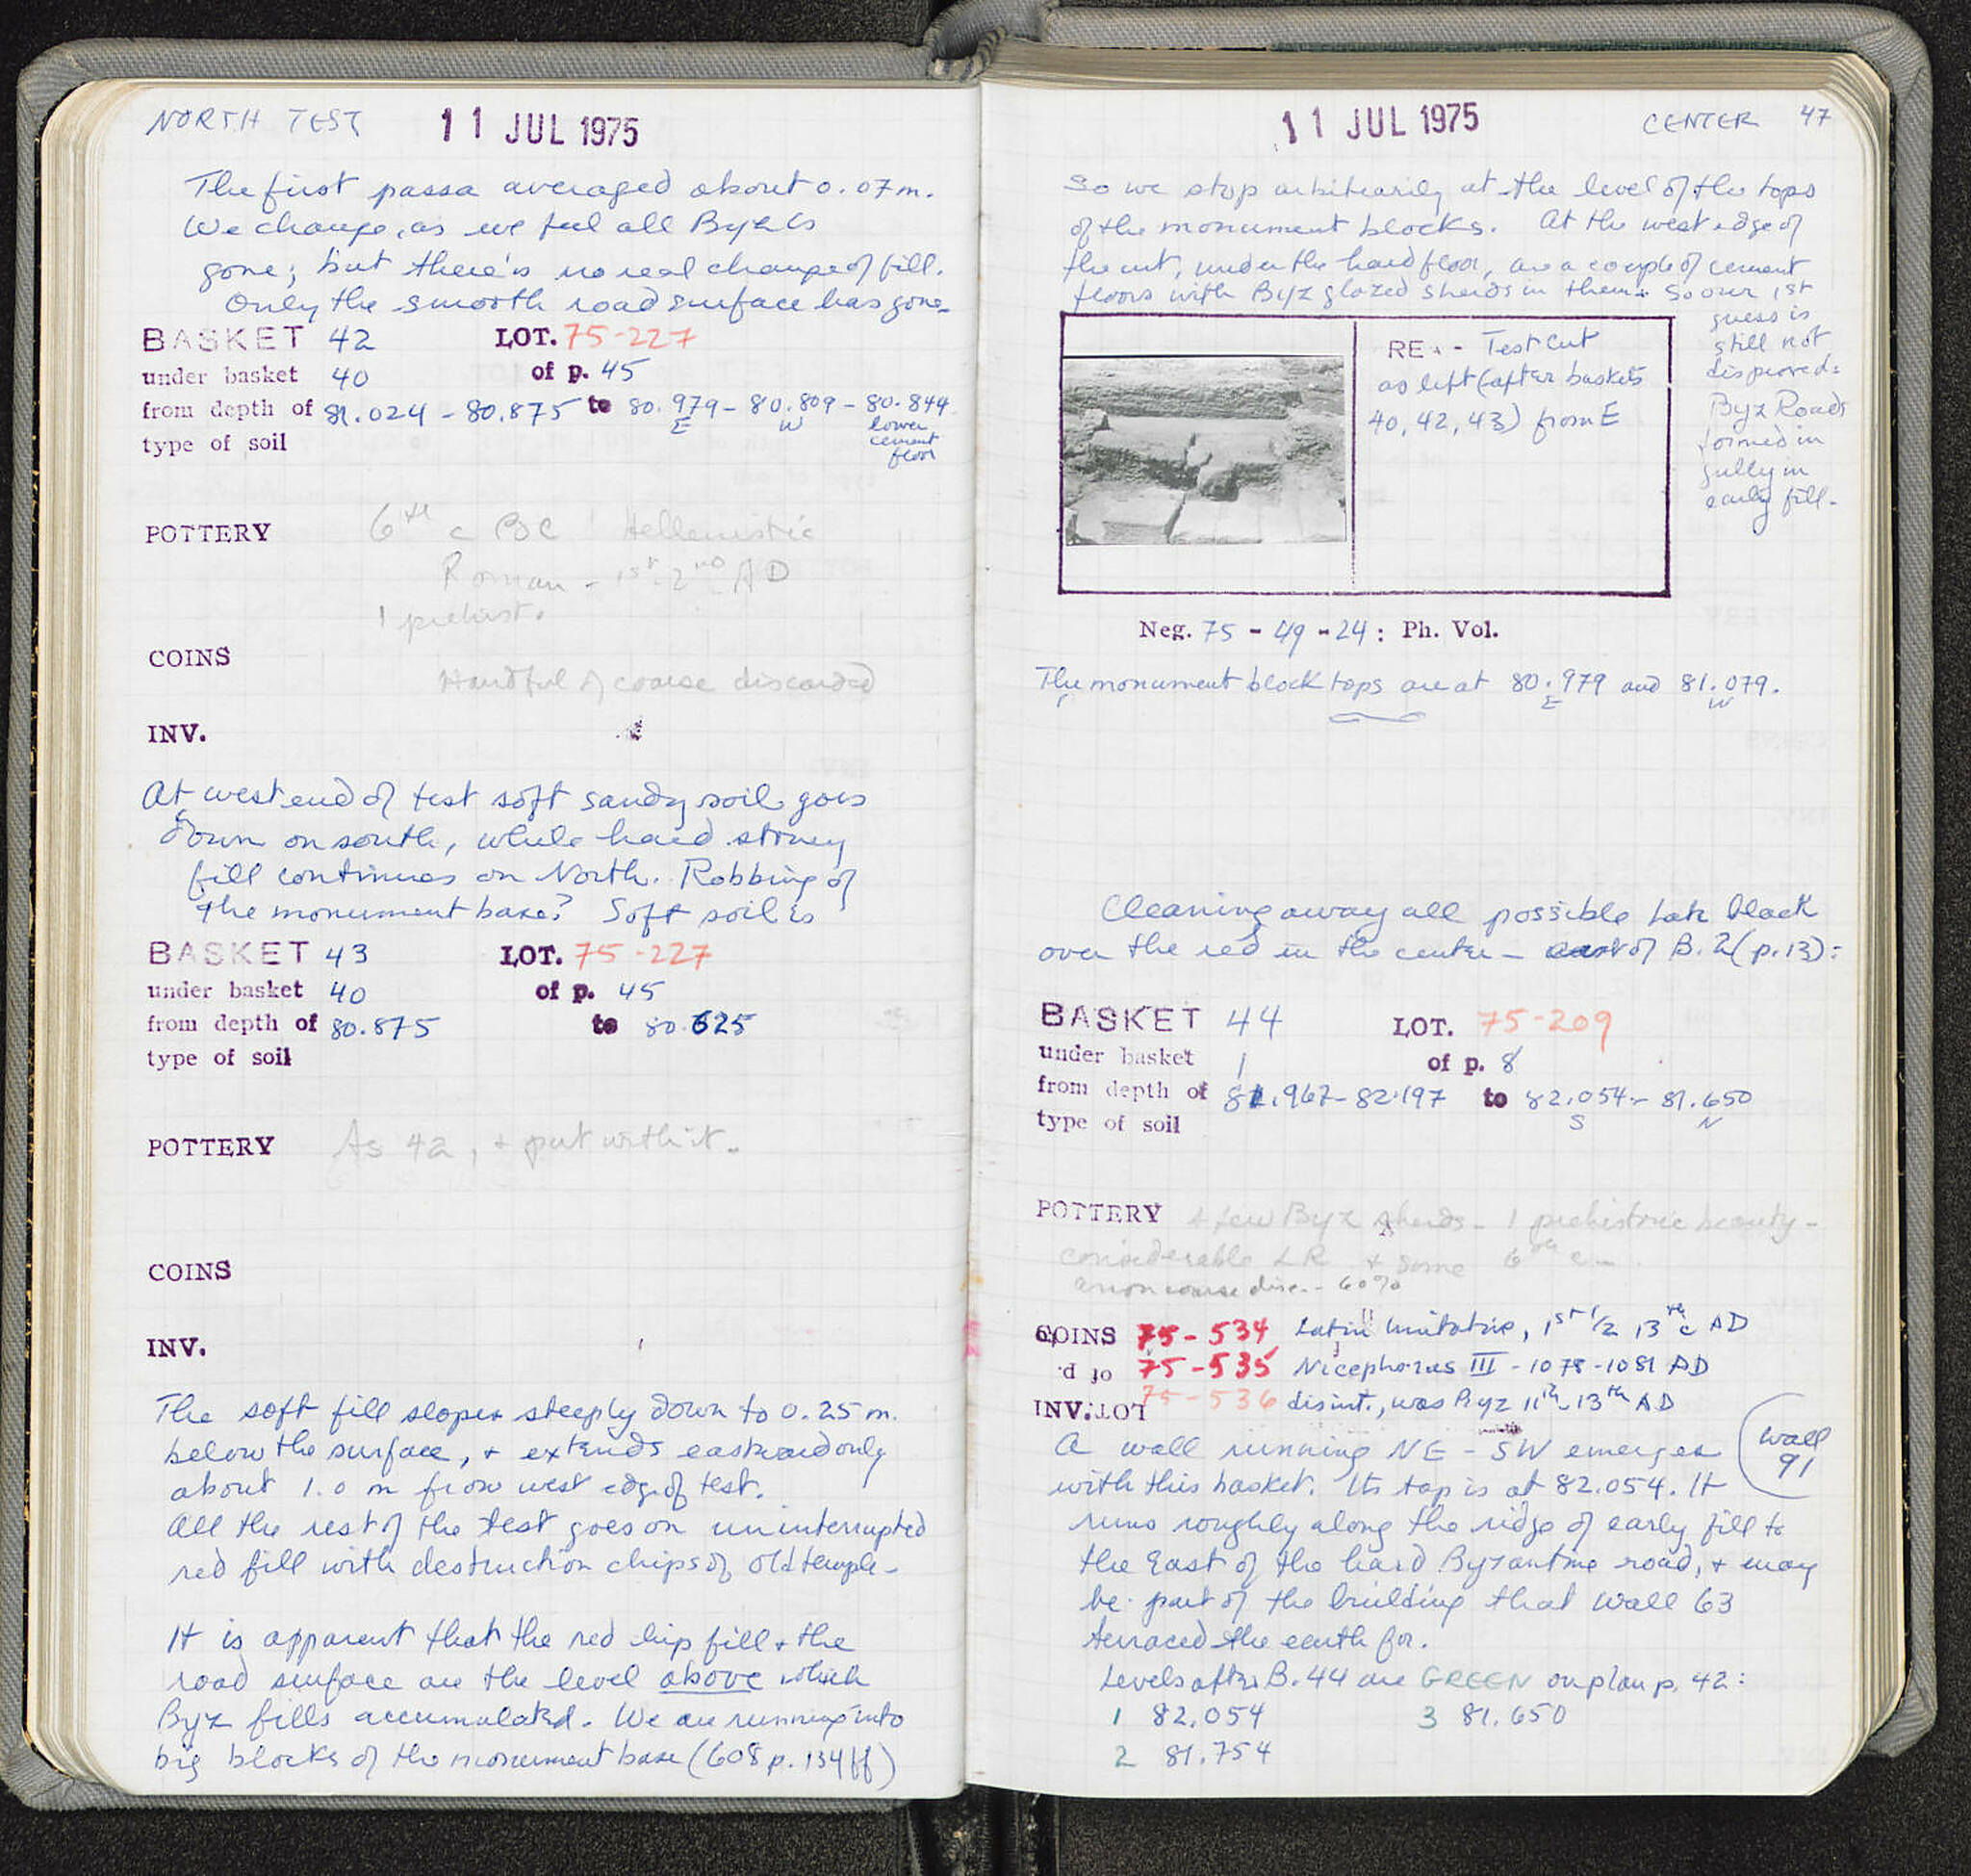 NORTH TEST
11 JUL 1975
The first passa averaged about 0.07m.
We change, as we feel all Byz is
gone; but there's no real change of fill.
Only the smooth road surface has gone.
BASKET 42 LOT. 75-227
under basket 40 of p. 45
from depth of 81.024 - 80.875 to 80.979 - 80.809 - 80.844
E W lower
cement
floor
type of soil
POTTERY 6th c BC Hellenistic
Roman - 1st-2nd AD
1 prehist.
COINS
Handful of coarse discarded
INV.
At west end of test soft sandy soil goes
down on south, while hard stoney
fill continues on North. Robbing of
the monument base? Soft soil is
BASKET 43 LOT. 75-227
under basket 40 of p. 45
from depth of 80.875 to 80.625
type of soil
POTTERY As 42, + put with it.
COINS
INV.
The soft fill slopes steeply down to 0.25 m.
below the surface, + extends eastward only
about 1.0 m from west edge of test.
All the rest of the test goes on uninterrupted
red fill with destruction chips of old temple.
It is apparent that the red chip fill + the
road surface are the level above which
Byz fills accumulated. We are running into
big blocks of the monument base (608 p. 134ff)
11 JUL 1975
CENTER 47
So we stop arbitrarily at the level of the tops
of the monument blocks. At the west edge of
the cut, under the hard floor, are a couple of cement
floors with Byz glazed sherds in them. So our 1st
guess is
still not
disproved:
Byz Roads
formed in
gully in
early fill.
RE - Test Cut
as left (after baskets
40, 42, 43) from E
Neg. 75 - 49 - 24 : Ph. Vol.
The monument block tops are at 80.979 and 81.079.
E W
Cleaning away all possible late black
over the red in the center - east of B. 2 (p. 13):
BASKET 44 LOT. 75-209
under basket 1 of p. 8
from depth of 81.967 - 82.197 to 82.054 - 81.650
S N
type of soil
POTTERY + few Byz sherds - 1 prehistoric beauty -
considerable LR + some 6th c
60%
COINS 75-534 Latin Imitative, 1st 1/2 13th c AD
75-535 Nicephorus III - 1078-1081 AD
75-536 disint., was Byz 11th-13th AD
INV. LOT
A wall running NE - SW emerges
with this basket. Its top is at 82.054. It
wall
91
runs roughly along the ridge of early fill to
the East of the hard Byzantine road, + may
be part of the building that wall 63
terraced the earth for.
Levels after B. 44 are GREEN on plan p. 42:
1 82.054 3 81.650
2 81.754